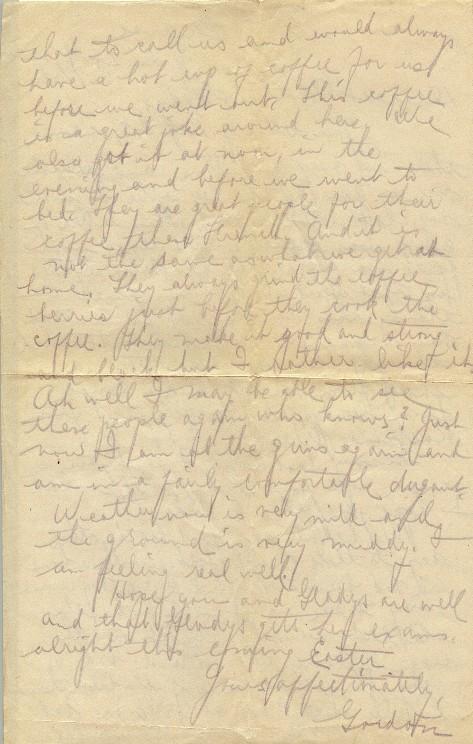 that to call us and would always
have a hot cup of coffee for us
before we went out. This coffee
is a great joke around here. We
also got it at noon, in the
evening and before we went to
bed. They are great people for their
coffee, these French. And it is
not the same as what we get at
home. They always grind the coffee
berries just before they cook the
coffee. They make it good and strong
and black but I rather like it
Ah well I may be able to see
these people again who knows? Just
now I am at the guns again and
am in a fairly comfortable dugout.
Weather now is very mild and
the ground is very muddy. I
am feeling real well.
Hope you and Gladys are well
and that Gladys gets her exams.
alright this coming Easter
Yours affectionately,
Gordon